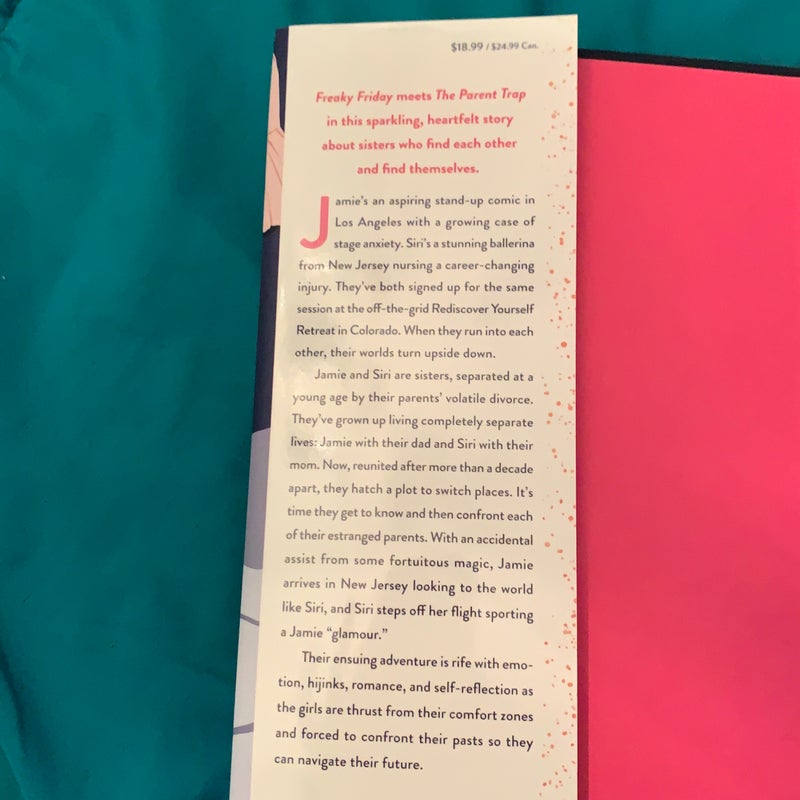 $18.99 / $24.99 Can.
Freaky Friday meets The Parent Trap
in this sparkling, heartfelt story
about sisters who find each other
and find themselves.
Jamie's an aspiring stand-up comic in
Los Angeles with a growing case of
stage anxiety. Siri's a stunning ballerina
from New Jersey nursing a career-changing
injury. They've both signed up for the same
session at the off-the-grid Rediscover Yourself
Retreat in Colorado. When they run into each
other, their worlds turn upside down.
Jamie and Siri are sisters, separated at a
young age by their parents' volatile divorce.
They've grown up living completely separate
lives: Jamie with their dad and Siri with their
mom. Now, reunited after more than a decade
apart, they hatch a plot to switch places. It's
time they get to know and then confront each
of their estranged parents. With an accidental
assist from some fortuitous magic, Jamie
arrives in New Jersey looking to the world
like Siri, and Siri steps off her flight sporting
a Jamie “glamour.”
Their ensuing adventure is rife with emo-
tion, hijinks, romance, and self-reflection as
the girls are thrust from their comfort zones
and forced to confront their pasts so they
can navigate their future.